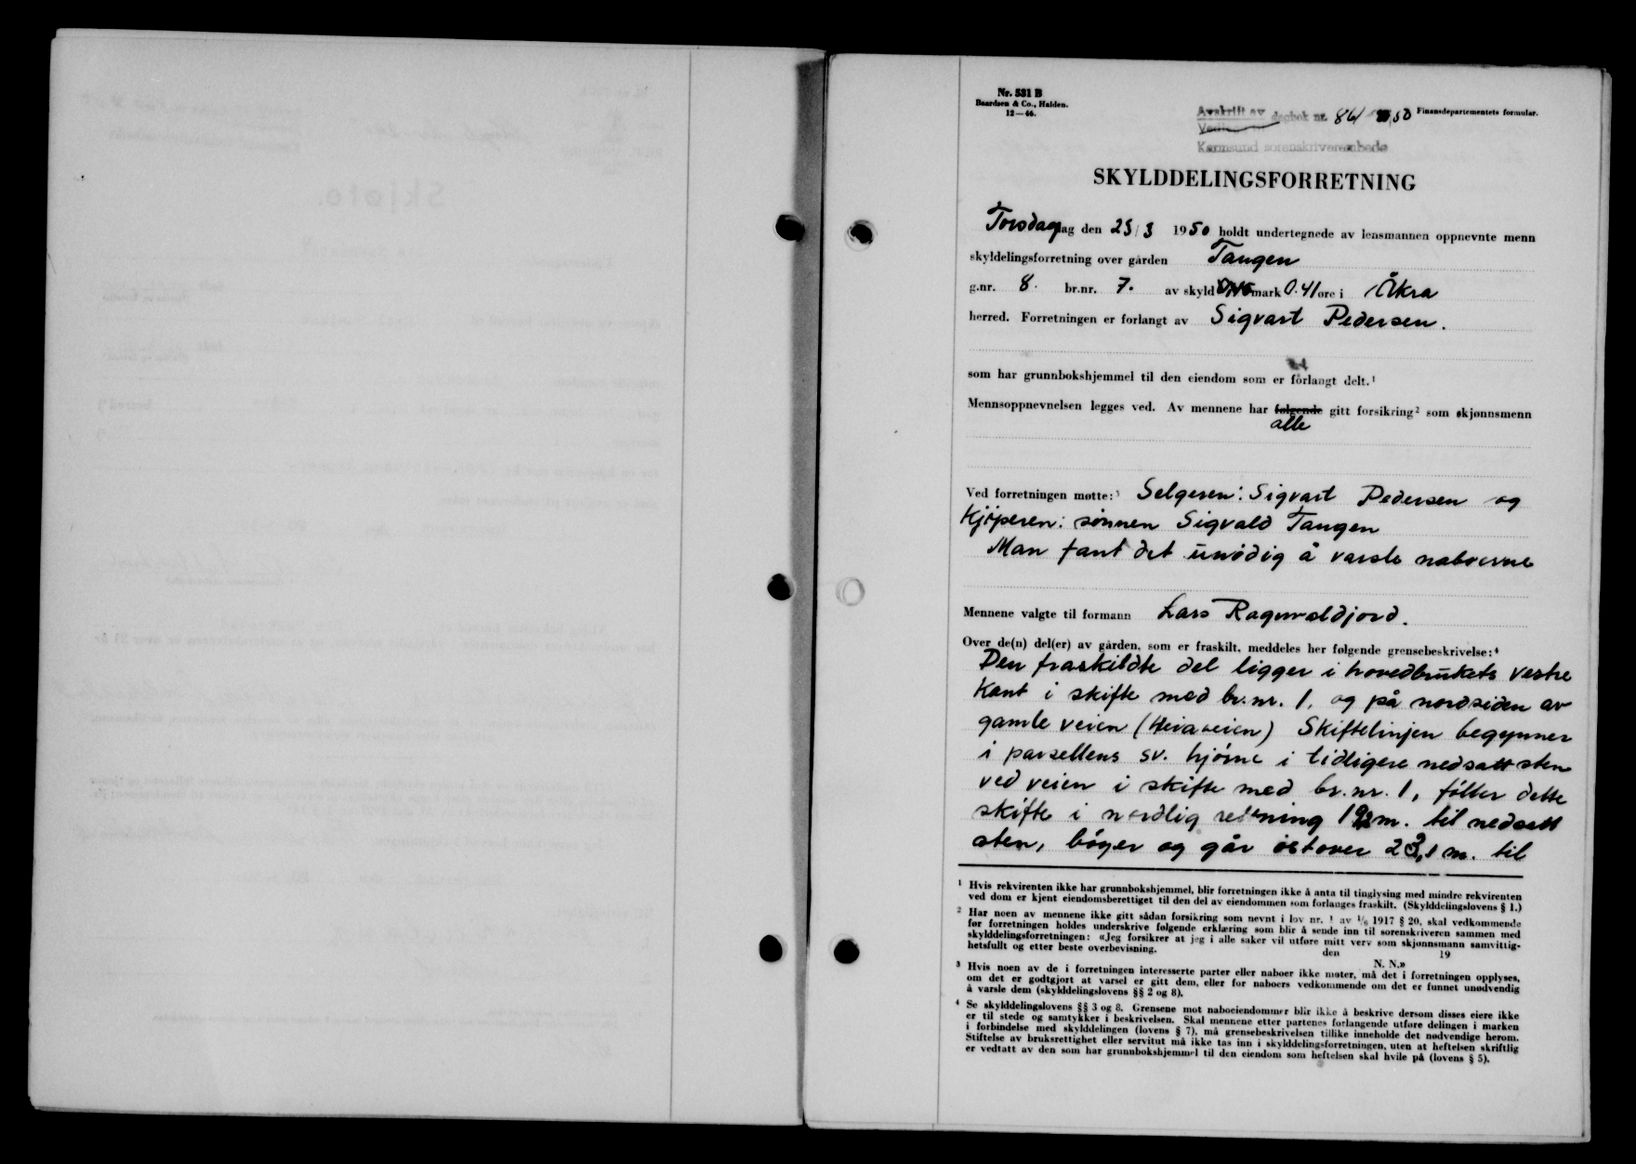 Nr. 531 B
Baardsen & Co., Halden.
12—46.
Avskrift av dagbok nr. 861 1950
Karmsund sorenskriverembede
Finansdepartementets formular.
SKYLDDELINGSFORRETNING
Torsdag dag den 23/3 1950 holdt undertegnede av lensmannen oppnevnte menn
skyldelingsforretning over gården Tangen
g.nr. 8. br.nr. 7. av skyld mark 0.41 øre i Åkra
herred. Forretningen er forlangt av Sigvart Pedersen.
som har grunnbokshjemmel til den eiendom som er forlangt delt.¹
Mennsoppnevnelsen legges ved. Av mennene har følgende gitt forsikring² som skjønnsmenn
alle
Ved forretningen møtte:³ Selgeren: Sigvart Pedersen og
Kjøperen: sønnen Sigvald Tangen
Man fant det unødig å varsle naboerne
Mennene valgte til formann Lars Ragnvaldjord.
Over de(n) del(er) av gården, som er fraskilt, meddeles her følgende grensebeskrivelse:⁴
Den fraskildte del ligger i hovedbrukets vestre
Kant i skifte med br.nr. 1, og på nordsiden av
gamle veien (Heiaveien) Skiftelinjen begynner
i parsellens sv. hjørne i tidligere nedsatt sten
ved veien i skifte med br.nr. 1, føller dette
skifte i nordlig retning 192 m. til nedsatt
sten, bøyer og går østover 23,1 m. til
¹ Hvis rekvirenten ikke har grunnbokshjemmel, blir forretningen ikke å anta til tinglysing med mindre rekvirenten
ved dom er kjent eiendomsberettiget til den del av eiendommen som forlanges fraskilt. (Skylddelingslovens § 1.)
² Har noen av mennene ikke gitt sådan forsikring som nevnt i lov nr. 1 av 1/6 1917 § 20, skal vedkommende
før forretningen holdes underskrive følgende erklæring som blir å sende inn til sorenskriveren sammen med
skylddelingsforretningen: «Jeg forsikrer at jeg i alle saker vil utføre mitt verv som skjønnsmann samvittig-
hetsfullt og etter beste overbevisning. den 19
N. N.»
³ Hvis noen av de i forretningen interesserte parter eller naboer ikke møter, må det i forretningen opplyses,
om det er godtgjort at varsel er gitt dem, eller for naboers vedkommende om det er funnet unødvendig
å varsle dem (skylddelingslovens §§ 2 og 8).
⁴ Se skylddelingslovens §§ 3 og 8. Grensene mot naboeiendommer blir ikke å beskrive dersom disses eiere ikke
er til stede og samtykker i beskrivelsen. Skal mennene etter partenes forlangende utføre delingen i marken
i forbindelse med skylddelingen (lovens § 7), må grensebeskrivelsen tillike inneholde det nødvendige herom.
Stiftelse av bruksrettighet eller servitut må ikke tas inn i skylddelingsforretningen, uten at heftelsen skriftlig
er vedtatt av den som har grunnbokshjemmel til den eiendom som heftelsen skal hvile på (lovens § 5).